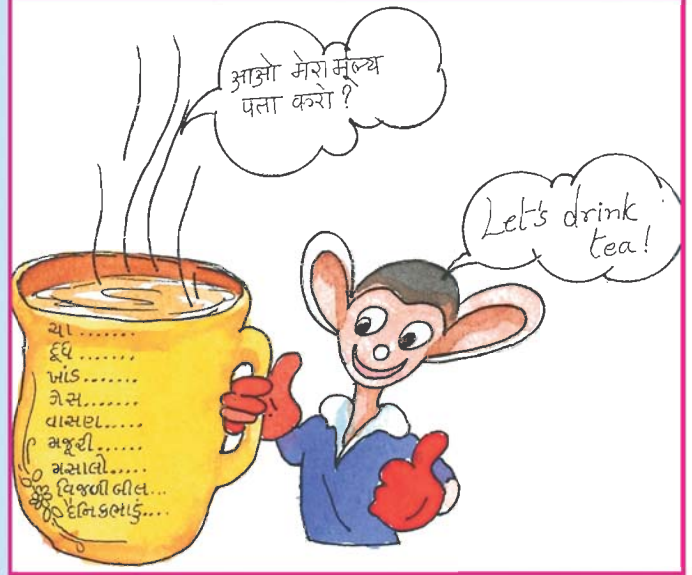 आओ मेरा मूल्य
पता करो ?
Let's drink
tea!
ચા .......
દૂધ .......
ખાંડ.......
ગેસ........
વાસણ......
મજૂરી......
મસાલો.....
વિજળી બીલ...
દૈનિકભાડું....